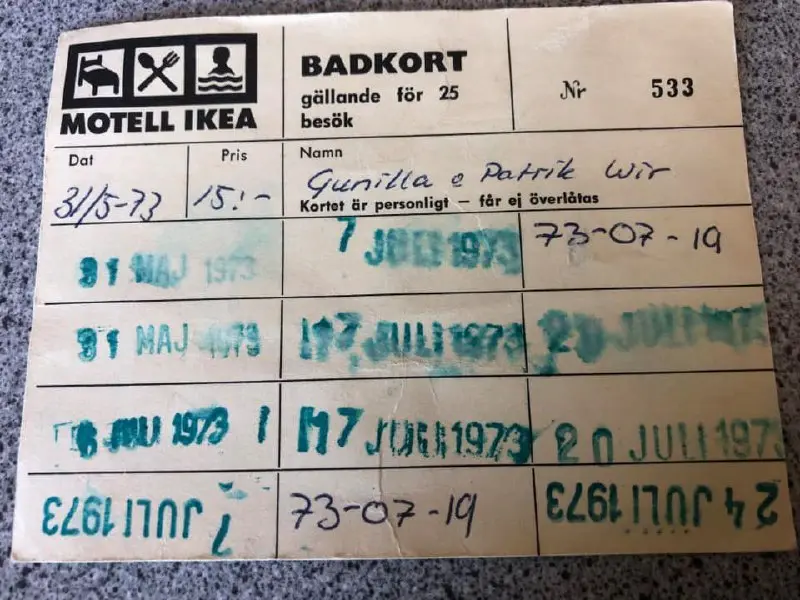 MOTELL IKEA
BADKORT
gällande för 25
besök
Nr 533
Dat Pris Namn
31/5-73 15:- Gunilla e Patrik Wir
Kortet är personligt – får ej överlåtas
31 MAJ 1973 7 JULI 1973 73-07-19
31 MAJ 1973 17 JULI 1973 20 JULI
6 1973 17 JULI 1973 20 JULI 1973
7 JULI 1973 73-07-19 24 JULI 1973